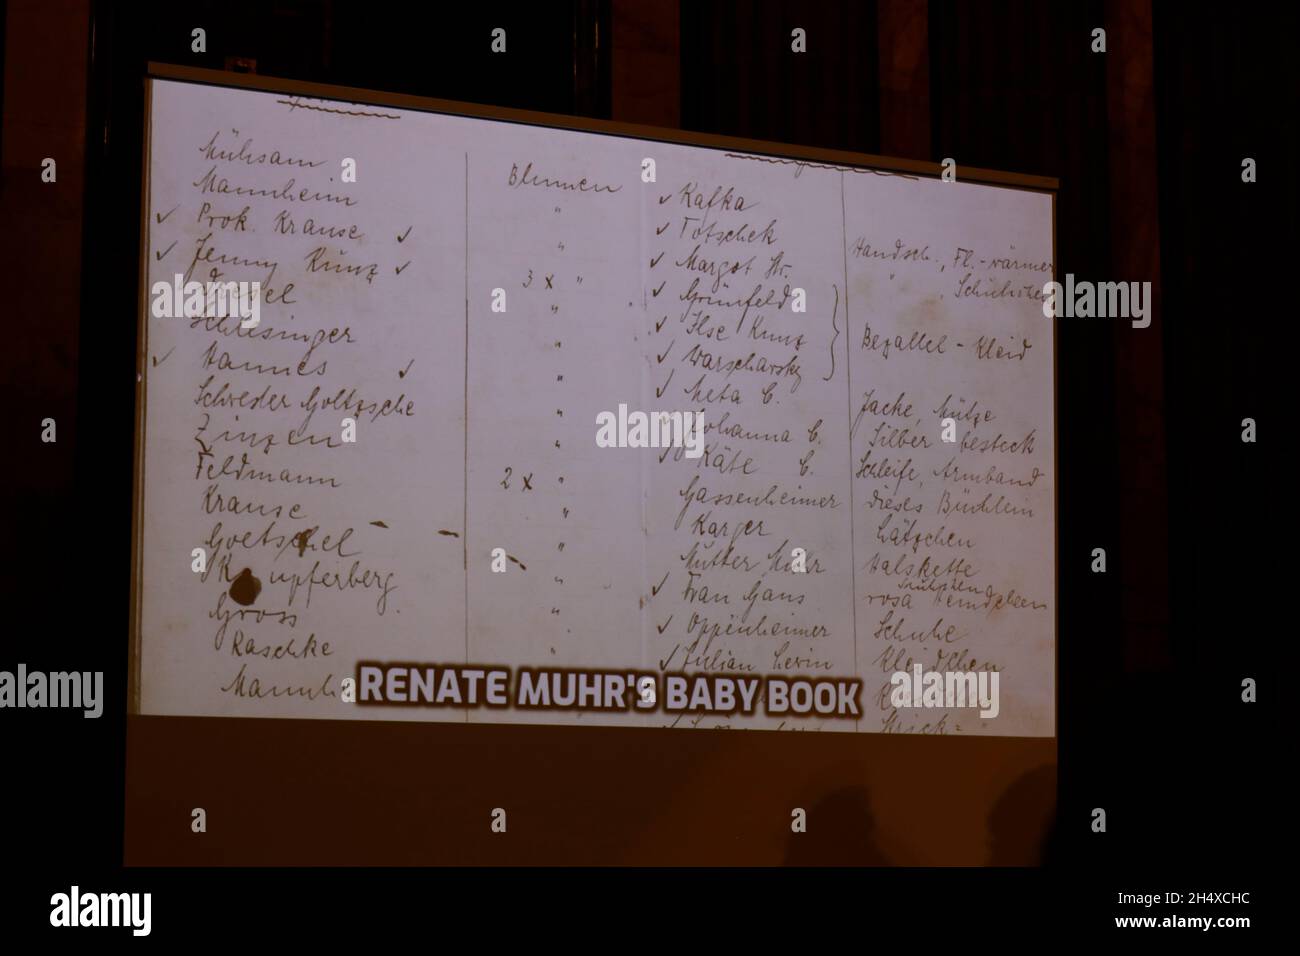 Mühsam
Mannheim
✓ Prok. Krause ✓
✓ Jenny Kunz ✓
Schlesinger
✓ Hannes ✓
Schwester Goltzsche
Zinzen
Feldmann
Krause
Goetschel
Kupferberg
Gross
Raschke
Blumen
"
"
3 x "
"
"
"
"
"
2 x "
"
"
"
"
"
✓ Kafka
✓ Totschek
✓ Margot Kr.
✓ Grünfeld
✓ Ilse Kunz
✓ Warschawsky
✓ Meta C.
Johanna C.
Käte C.
Gassenheimer
Karger
Mutter Muhr
✓ Frau Gans
✓ Oppenheimer
✓ Julian Levin
Handsch., Fl.-wärmer
"
Kleid
Jacke, Mütze
Silber besteck
Schleife, Armband
dieses Büchlein
Lätzchen
Halskette
rosa
Schuhe
Kleidchen
Strick=
RENATE MUHR'S BABY BOOK
alamy
alamy
alamy
alamy
alamy
Image ID: 2H4XCHC
www.alamy.com